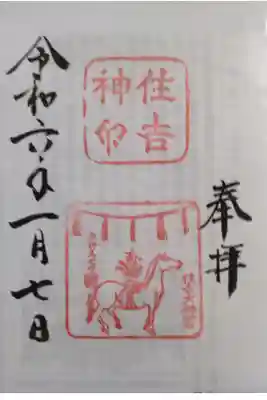 奉拝
住吉
神印
令和六年一月七日